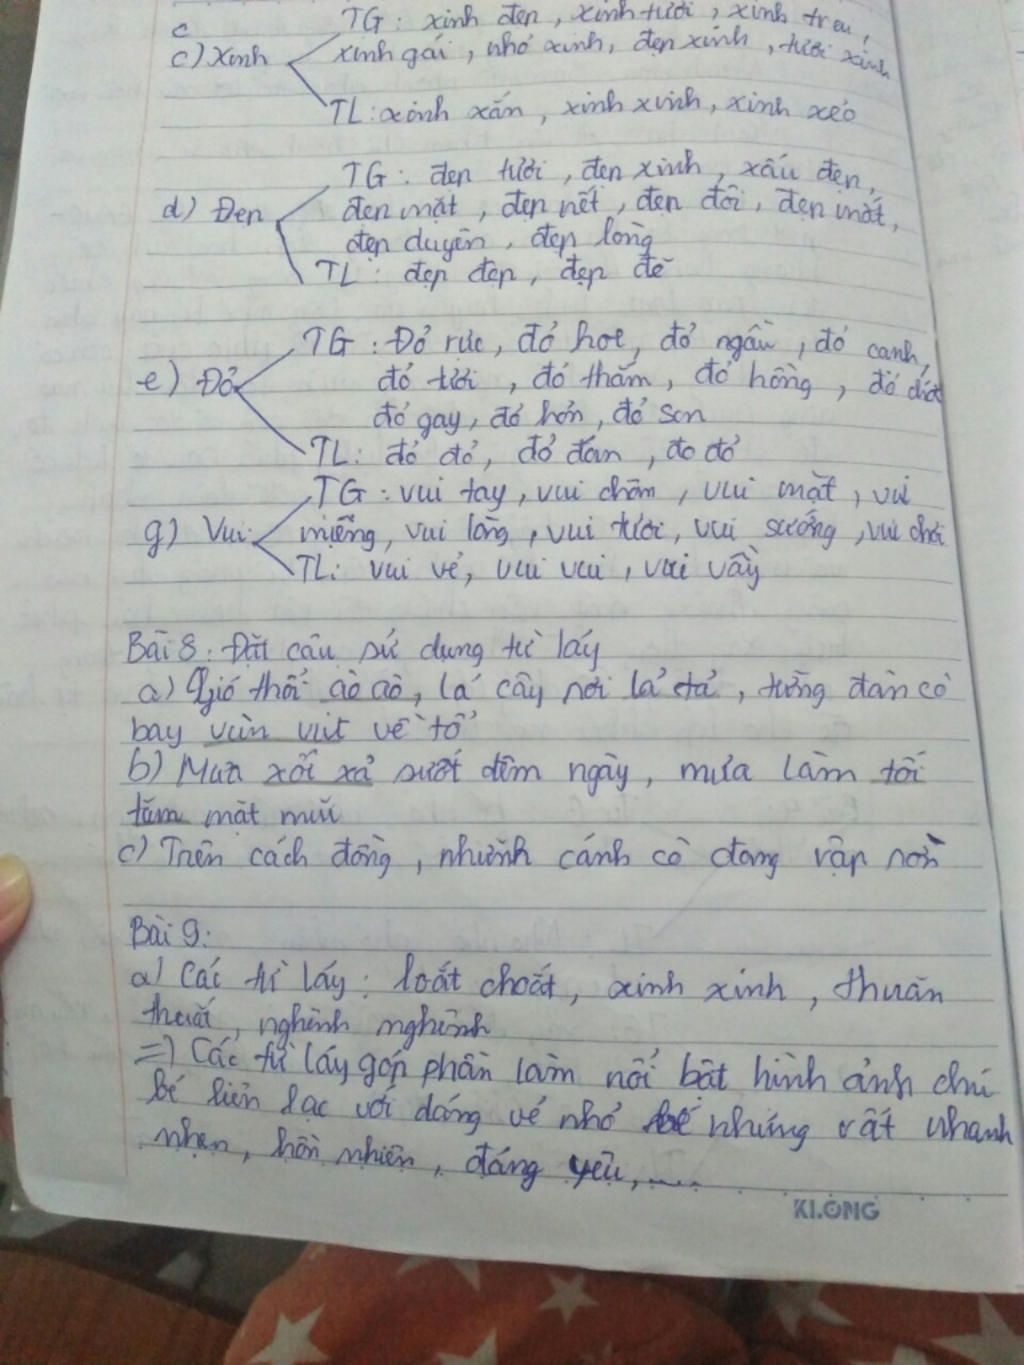 c TG: xinh đẹp, xinh tươi, xinh trai,
c) Xinh xinh gái, nhỏ xinh, đẹp xinh, tươi xinh
TL: xinh xắn, xinh xinh, xinh xẻo
TG: đẹp tươi, đẹp xinh, xấu đẹp,
d) Đẹp đẹp mặt, đẹp nết, đẹp đôi, đẹp mắt,
đẹp duyên, đẹp lòng
TL: đẹp đẹp, đẹp đẽ
TG: Đỏ rực, đỏ hoe, đỏ ngầu, đỏ canh,
e) Đỏ đỏ tươi, đỏ thắm, đỏ hồng, đỏ
đỏ gay, đỏ hỏn, đỏ son
TL: đỏ đỏ, đỏ đắn, đo đỏ
TG: vui tay, vui chân, vui mặt, vui
g) Vui miệng, vui lòng, vui tươi, vui sướng, vui chơi
TL: vui vẻ, vui vui, vui vầy
Bài 8: Đặt câu sử dụng từ láy
a) Gió thổi ào ào, lá cây rơi lả tả, từng đàn cò
bay vùn vụt về tổ
b) Mưa xối xả suốt đêm ngày, mưa làm tối
tăm mặt mũi
c) Trên cách đồng, những cánh cò đang rập rờn
Bài 9:
a) Các từ láy: loắt choắt, xinh xinh, thuăn
thuắt, nghênh nghênh
=) Các từ láy góp phần làm nổi bật hình ảnh chú
bé liên lạc với dáng vẻ nhỏ bé nhưng rất nhanh
nhẹn, hồn nhiên, đáng yêu, .....
KLONG